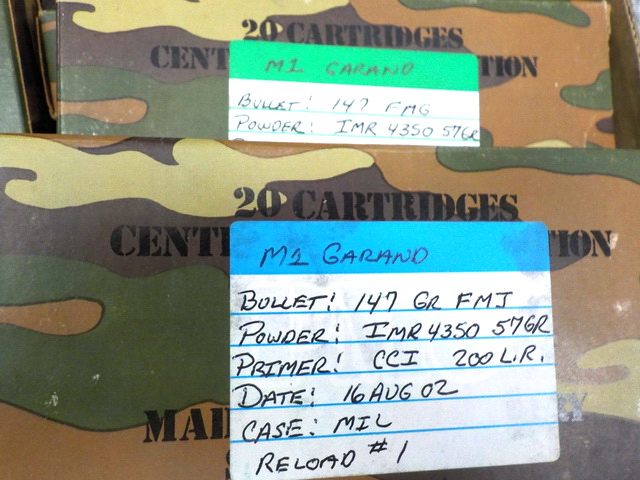 20 CARTRIDGES
CENT TION
M1 GARAND
BULLET: 147 FMG
POWDER: IMR 4350 57GR
20 CARTRIDGES
CENT TION
M1 GARAND
BULLET: 147 GR FMJ
POWDER: IMR 4350 57GR
PRIMER: CCI 200 L.R.
DATE: 16 AUG 02
CASE: MIL
RELOAD #1
MAD